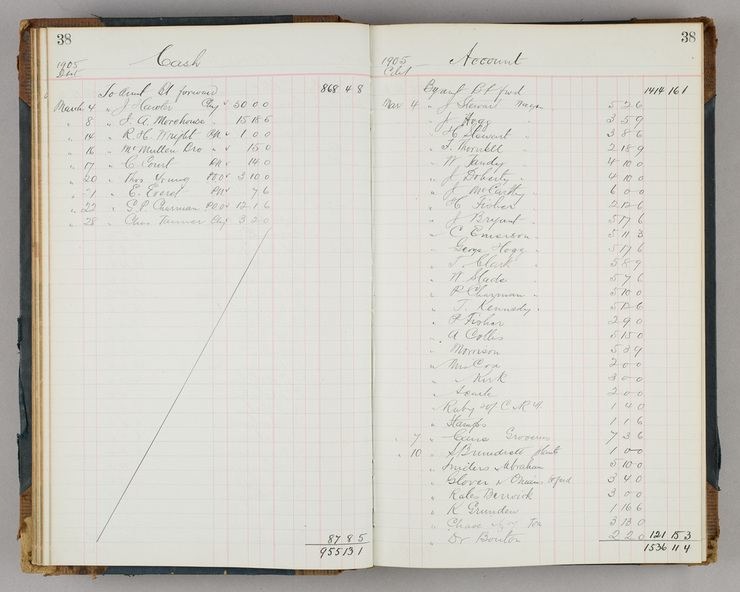 38
Cash
1905
To amt Bt forward 868 4 8
March 4 " J Hawler Chq 50 0 0
" 8 " J A. Morehouse " 15 18 5
" 14 " R H. Wright 1 0 0
" 16 " McMullen Bro " 15 0
" 17 " C Court 14 0
" 20 " Thos Young 3 10 0
" 21 " E. Everet 7 6
" 22 " G P. Charman 12 1 6
" 28 " Chas Turner Chq 3 2 0
87 8 5
955 13 1
38
Account
1905
By amt Bt fwd 1414 16 1
Mar 4 " J Stewart wages 5 2 6
" J Hogg " 3 5 9
" H Stewart " 3 8 6
" T. Thornhill 2 18 9
" W Tandy 4 10 0
" J Doherty " 4 10 0
" J McCarthy " 6 0 0
" H Fisher 2 12 6
" J Bryant " 5 17 6
" C Emerson 5 11 3
" George Hogg " 5 17 6
" T. Clark " 5 8 9
" W Slade 5 7 6
" P Charman " 5 10 0
" T. Kennedy " 5 12 6
" P Fisher 2 9 0
" A Collis 5 15 0
" Morrison 5 3 9
" Mrs Cox 2 0 0
" " Kirk 3 0 0
" 2 0 0
" Ruby 1 4 0
" Stamps 1 1 6
" 7 " Grocers 7 3 6
" 10 " S Benedict 1 0 0
" Snyders Abraham 5 10 0
" Glover & 3 4 0
" Kales Derrick 3 0 0
" K Grunden 1 16 6
" Chase 3 13 0
" Dr Bouton 2 2 0 121 15 3
1536 11 4